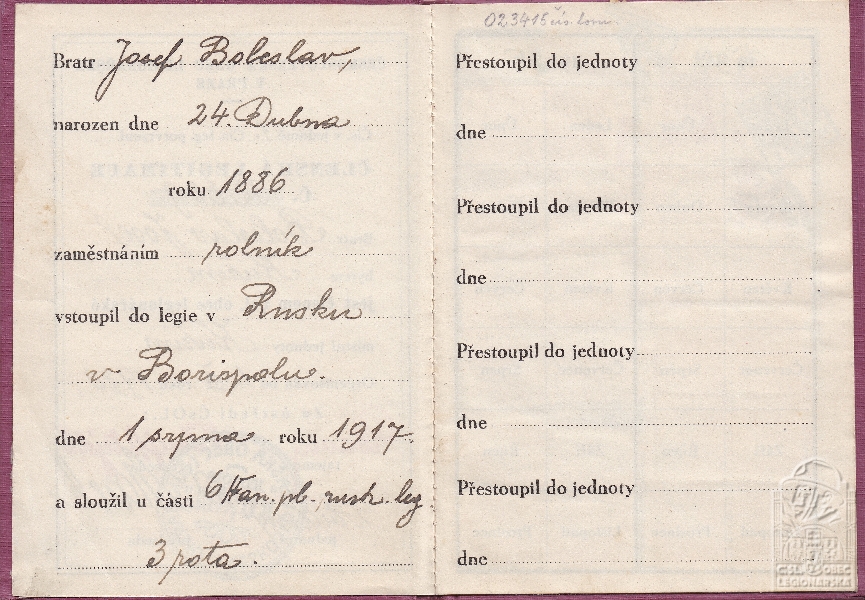 Bratr Josef Boleslav,
narozen dne 24. Dubna
roku 1886
zaměstnáním rolník
vstoupil do legie v Rusku
v Borispolu.
dne 1 srpna roku 1917.
a sloužil u části 6 Han. pl. rusk. leg
3 rota.
023415 čís.
Přestoupil do jednoty
dne
Přestoupil do jednoty
dne
Přestoupil do jednoty
dne
Přestoupil do jednoty
dne
ČS. OBEC
LEGIONÁŘSKÁ